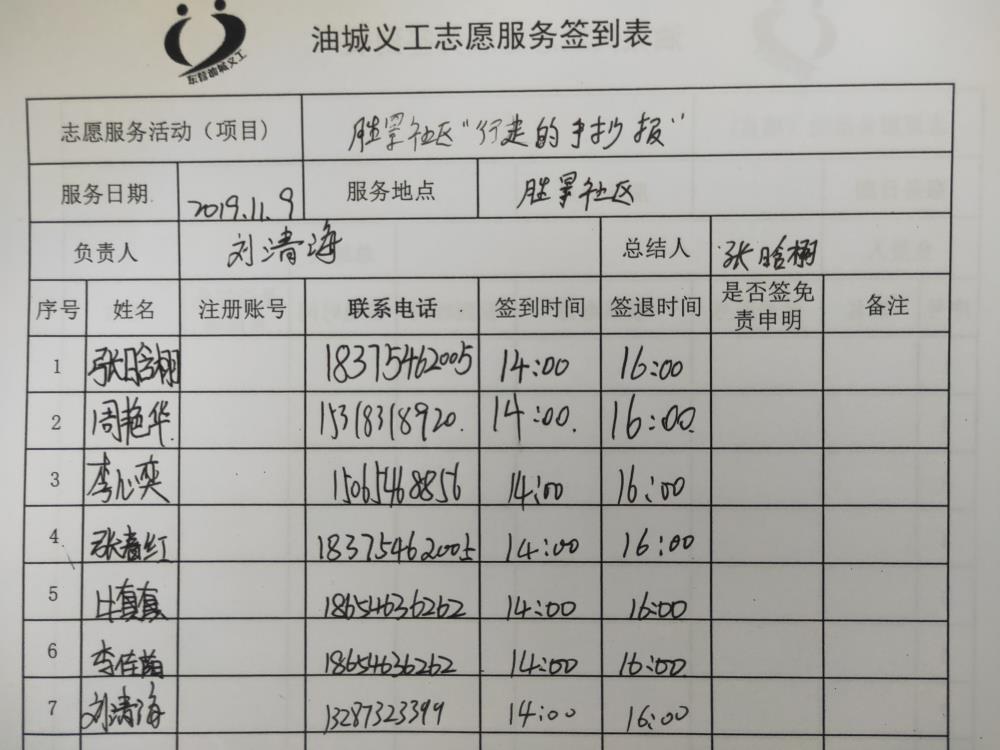 东营油城义工
油城义工志愿服务签到表
志愿服务活动（项目） 胜景社区“行走的手抄报”
服务日期 2019.11.9 服务地点 胜景社区
负责人 刘清海 总结人 张晗栩
序号 姓名 注册账号 联系电话 签到时间 签退时间 是否签免责申明 备注
1 张晗栩 18375462005 14:00 16:00
2 周艳华 15318318920. 14:00. 16:00.
3 李心奕 15065468856 14:00 16:00
4 张春红 18375462005 14:00 16:00
5 18654636262 14:00 16:00
6 李佳茵 18654636262 14:00 16:00
7 刘清海 13287323399 14:00 16:00